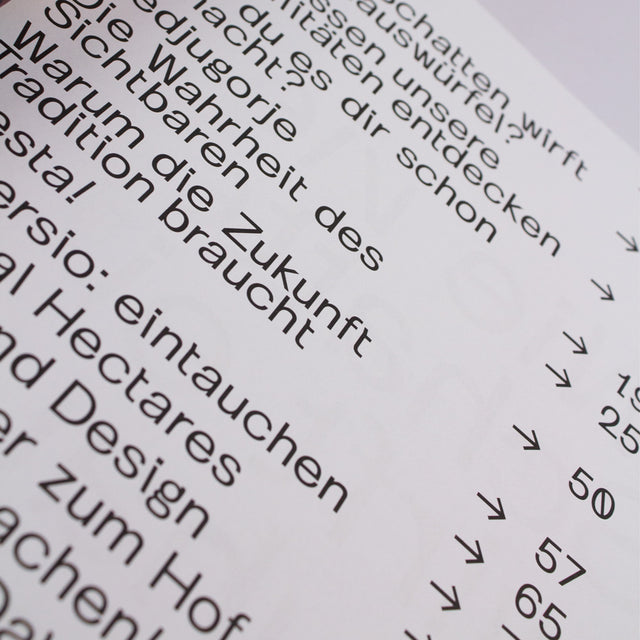 Schatten wirft
auswürfel?
ssen unsere
litäten entdecken
du es dir schon
acht?
edjugorje
Die Wahrheit des
Sichtbaren
Warum die Zukunft
Tradition braucht
esta!
ersio: eintauchen
al Hectares
nd Design
er zum Hof
achen
→
→
→ 19
→ 25
→ 50
→ 57
→ 65
→